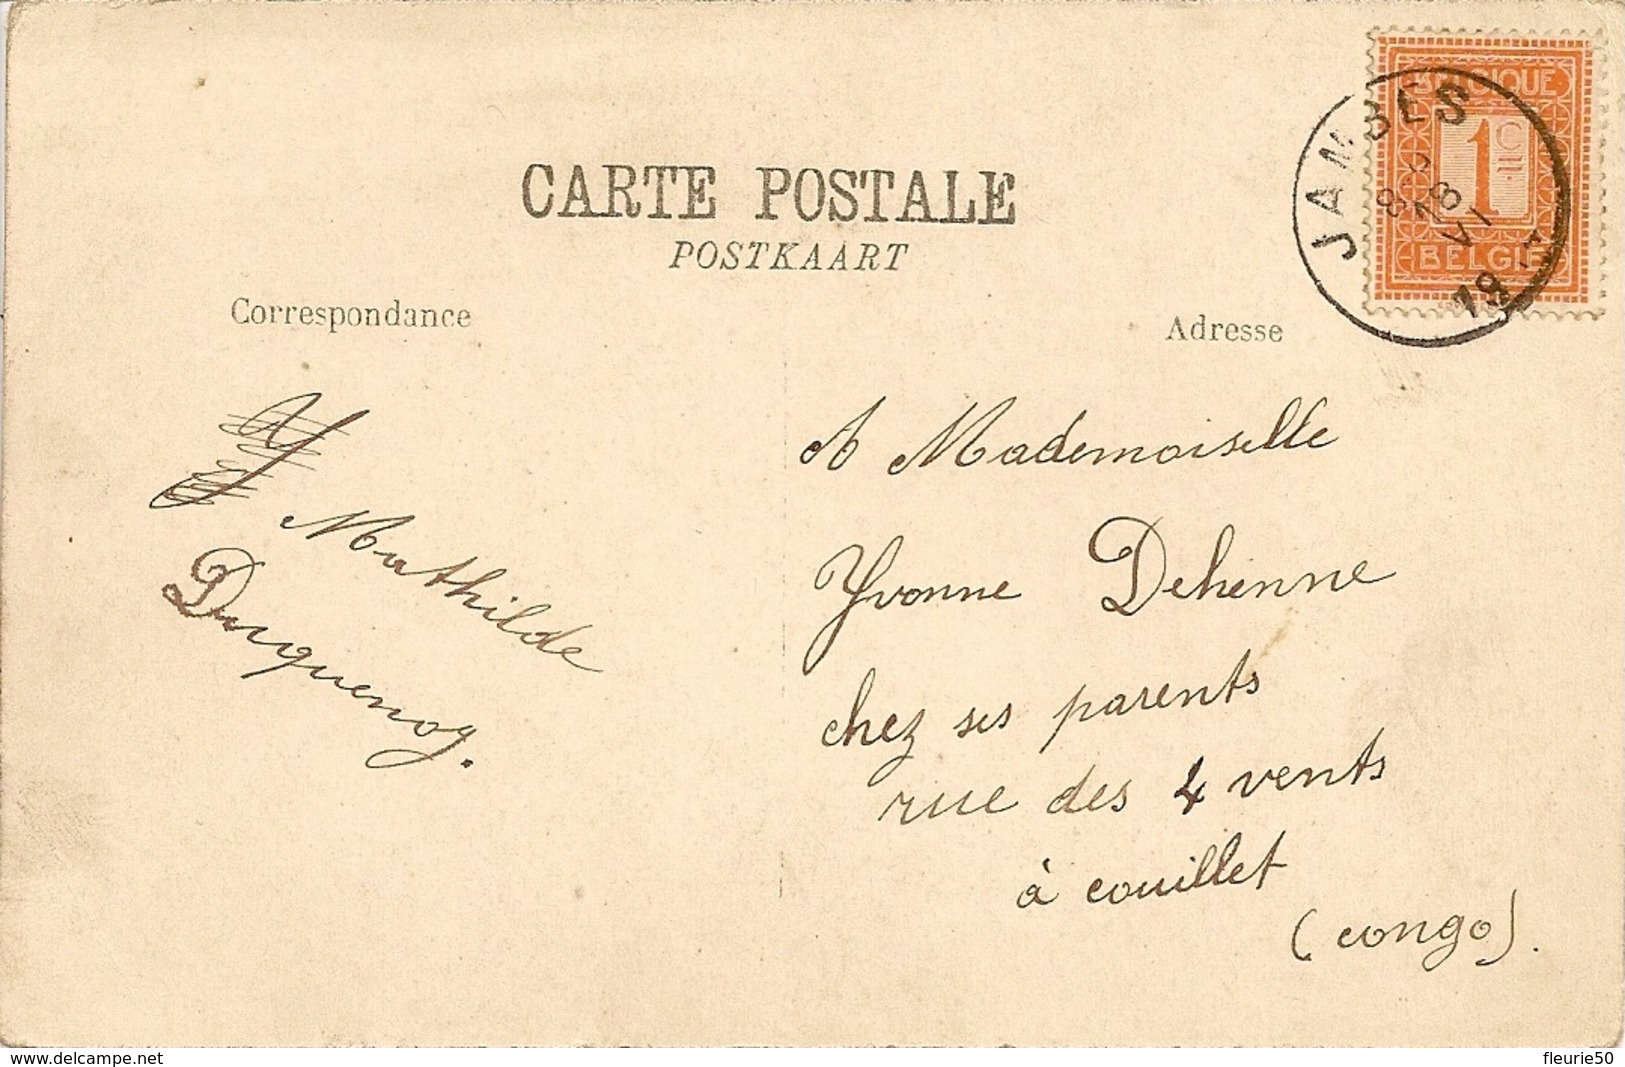 CARTE POSTALE
POSTKAART
Correspondance
Adresse
BELGIQUE
1 C
BELGIË
JAMBES
8-9
18
VI
19
Mathilde
Duquenoy.
A Mademoiselle
Yvonne Dehenne
chez ses parents
rue des 4 vents
à couillet
(congo).
www.delcampe.net
fleurie50